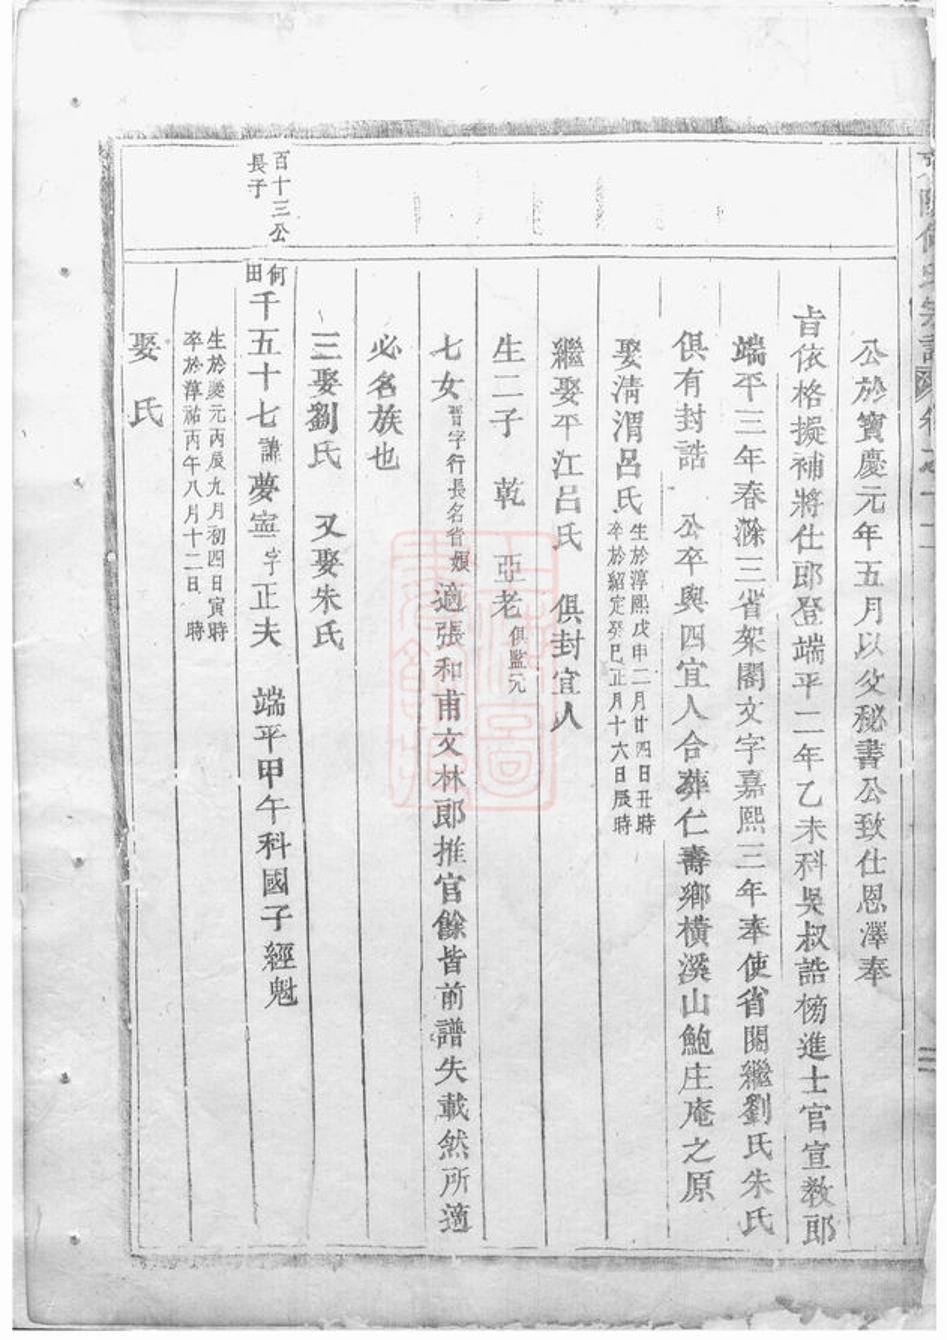 何氏宗譜
公於寶慶元年五月以父秘書公致仕恩澤奉
旨依格擬補將仕郎登端平二年乙未科吳叔誥榜進士官宣教郎
端平三年春滁三省架閣文字嘉熙三年奉使省閣繼劉氏朱氏
俱有封誥 公卒與四宜人合葬仁壽鄉橫溪山鮑庄庵之原
娶清渭呂氏 生於淳熙戊申二月廿四日丑時
卒於紹定癸巳正月十六日辰時
繼娶平江呂氏 俱封宜人
生二子 乾 亞老 俱監元
七女 晋字行長名省娘 適張和甫文林郎推官餘皆前譜失載然所適
必名族也
三娶劉氏 又娶朱氏
百十三公
長子
何
田
千五十七 諱 夢寍 字 正夫 端平甲午科國子經魁
生於慶元丙辰九月初四日寅時
卒於淳祐丙午八月十二日 時
娶 氏